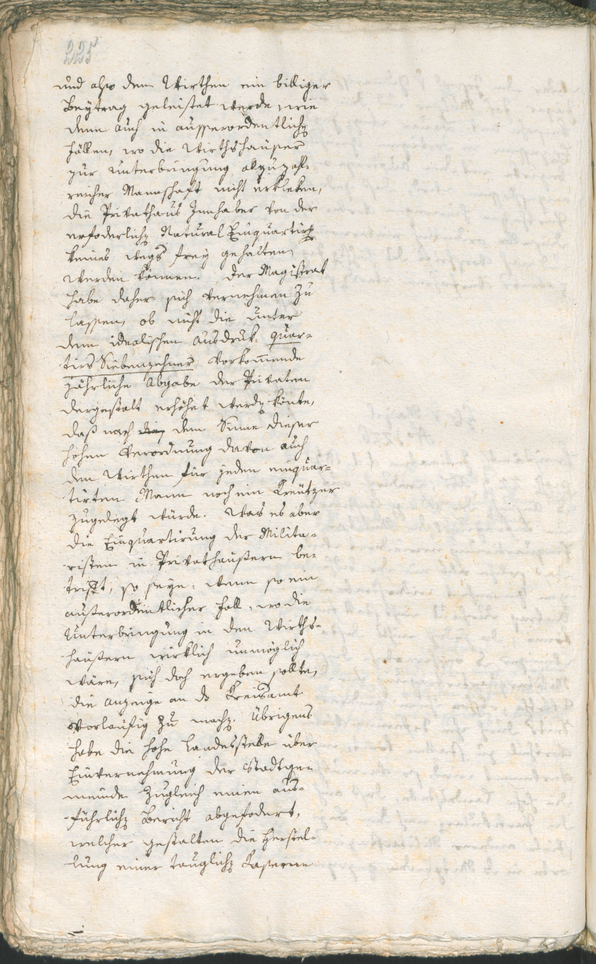 225
und also dem Wirthen ein billiger
Beÿtrag geleistet werde, wie
denn auch in ausserordentlichen
Fällen, wo die Wirthshäuser
zur Unterbringung allzuzahl-
reicher Mannschaft nicht erkleken,
die Privathaus Innhaber von der
erforderlichen Natural Einquartirung
keines wegs freÿ gehalten
werden können. Der Magistrat
habe daher sich vernehmen zu
lassen, ob nicht die unter
dem idealischen Ausdruk Quar-
tirs Siebenzehner vorkommende
jährliche Abgabe der Privaten
dergestalt erhöhet werden könte,
daß nach dem Sinne dieser
hohen Verordnung davon auch
den Wirthen für jeden einquar-
tirten Mann noch ein Kreützer
zugelegt würde. Was es aber
die Einquartirung der Milita-
risten in Privathäußern be-
trift, so seÿe, wenn so ein
außerordentlicher Fall, wo die
Unterbringung in den Wirths-
häußern wirklich unmöglich
wäre, sich doch ergeben sollte,
die Anzeige an das Kreisamt
vorläufig zu machen. Übrigens
habe die hohe Landesstelle über
Einvernehmung der Stadtge-
meinde zugleich einen aus-
führlichen Bericht abgefodert,
welcher gestalten die Herstel-
lung einer tauglichen Caserne